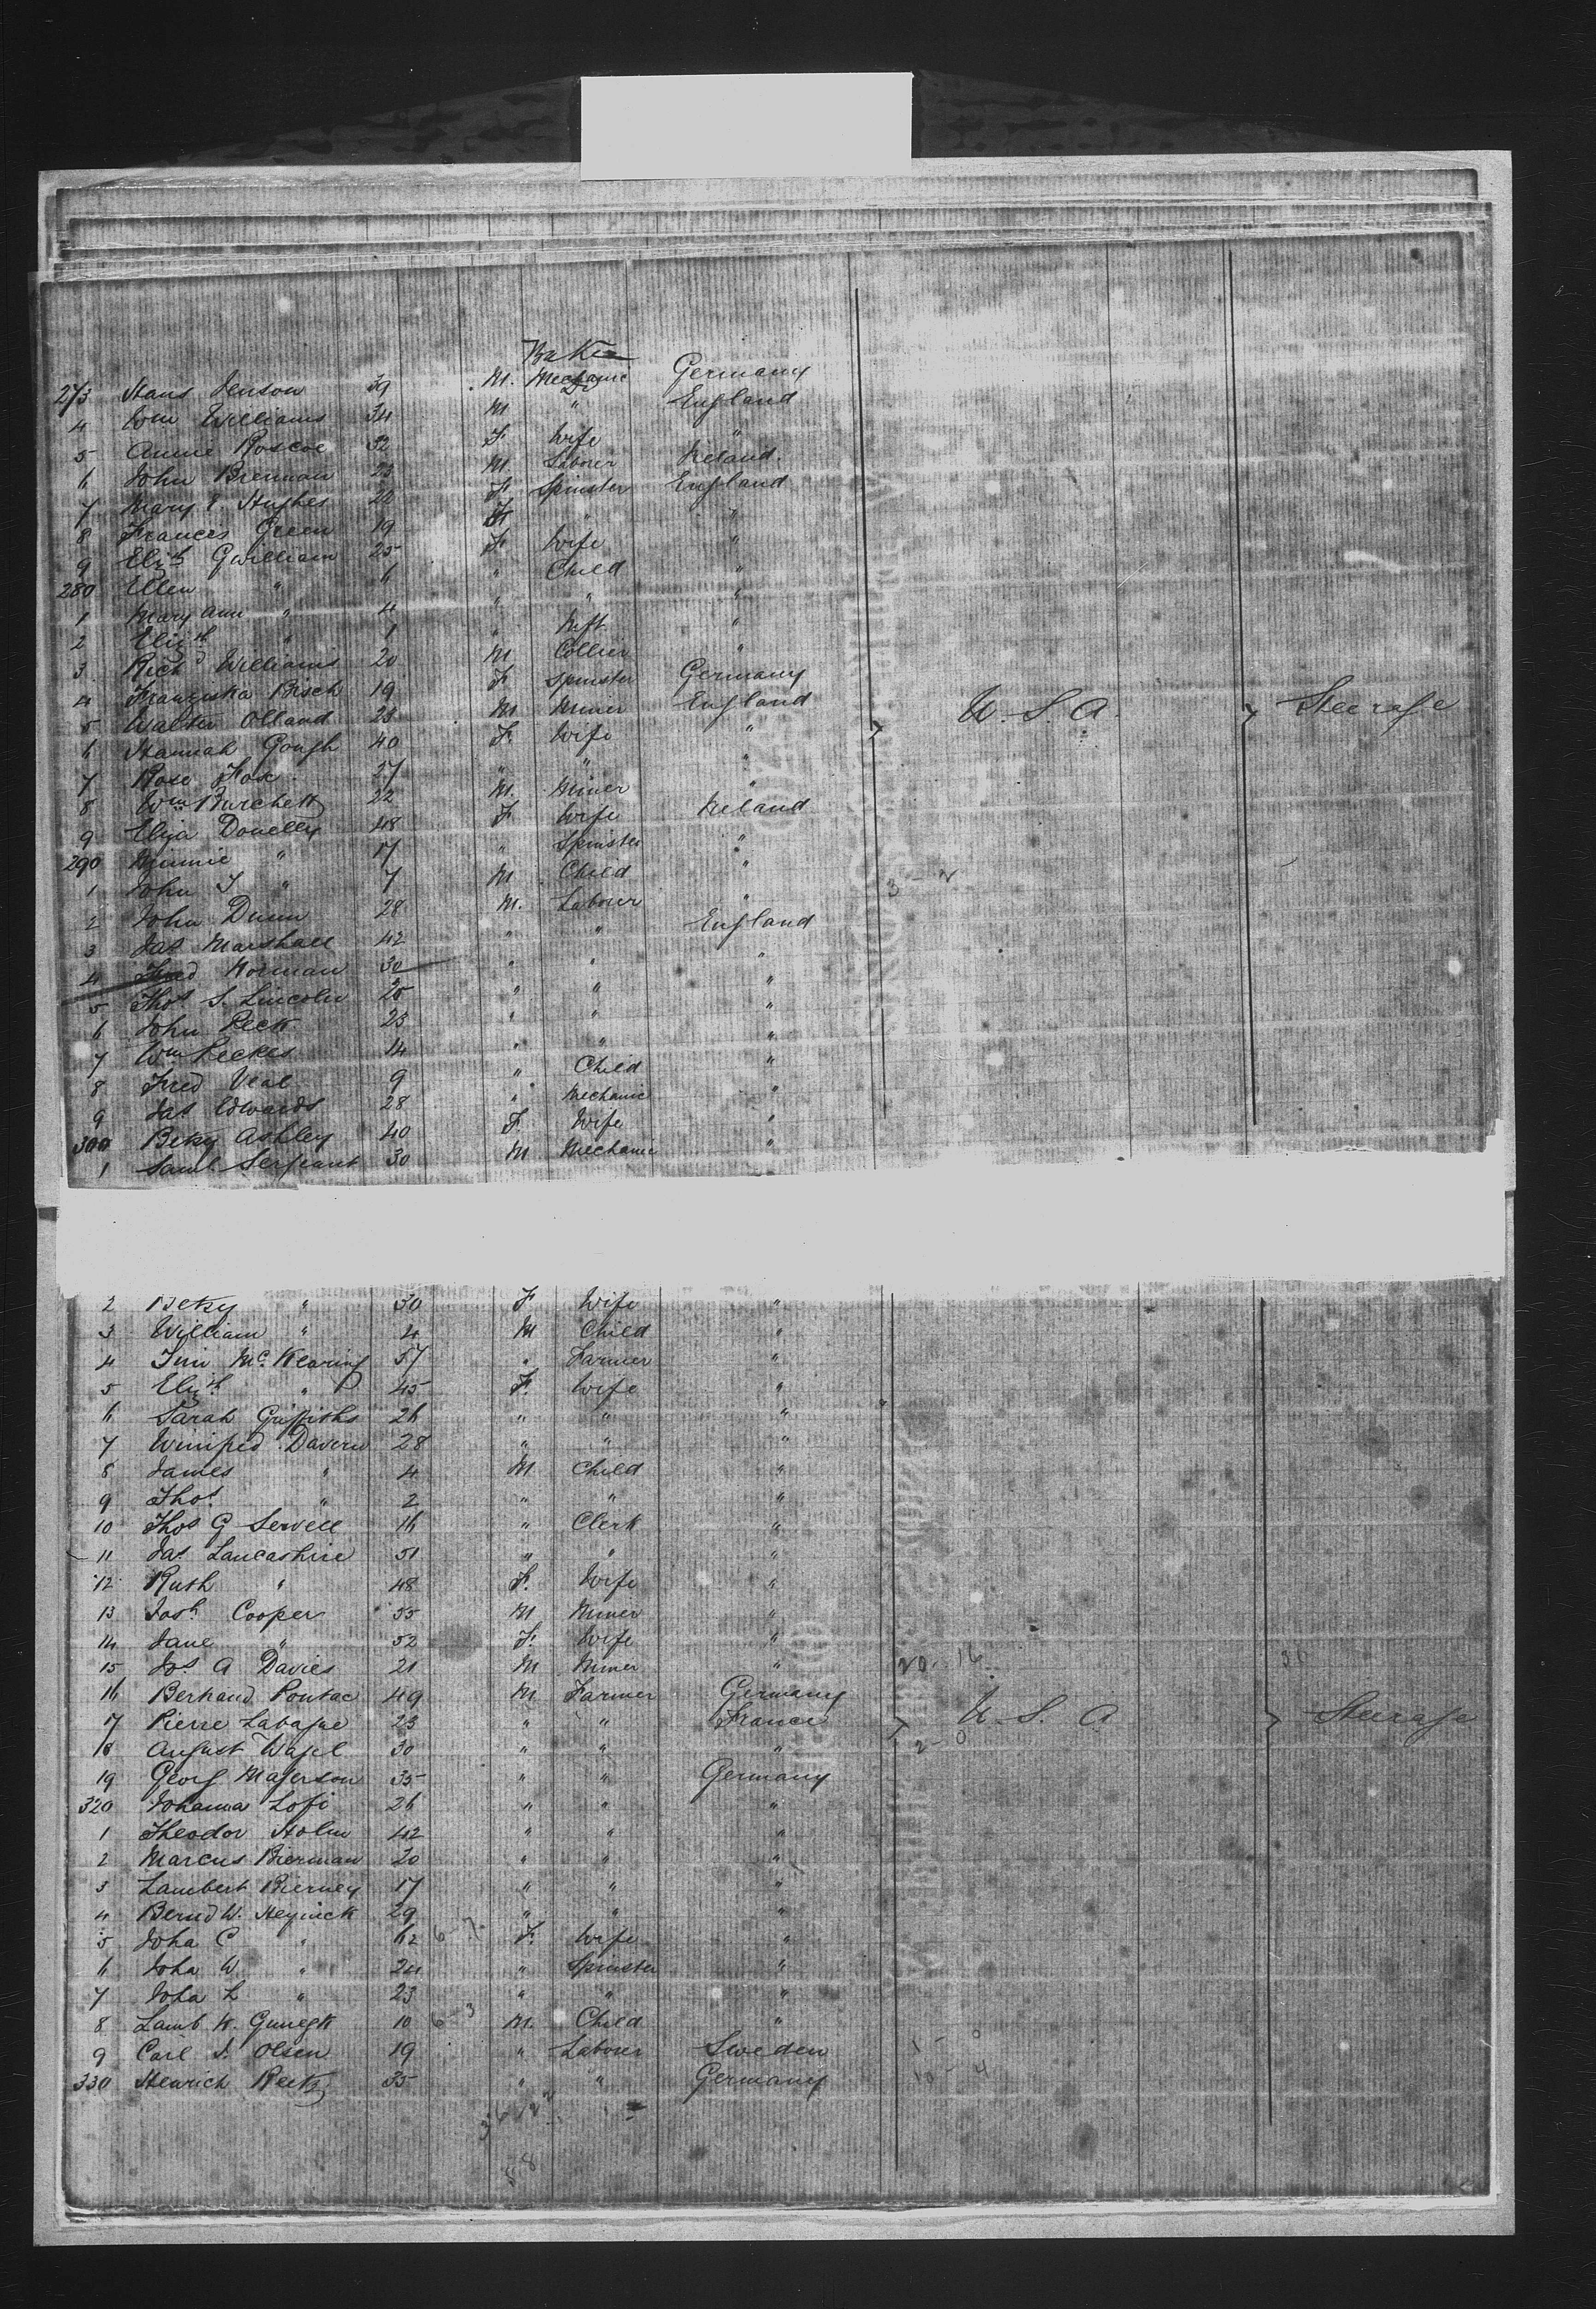 273 Hans Jenson 39 M. Mechanic Germany
4 Wm Williams 34 M " England
5 Annie Roscoe 32 F. Wife "
6 John Brennan 23 M. Labourer Ireland.
7 Mary E. Hughes 20 F Spinster England
8 Francis Green 19 " "
9 Elizth Gwilliam 25 F Wife "
280 Ellen " 6 " Child "
1 Mary Ann " 4 " " "
2 Elizth " 1 " Inft. "
3 Richd Williams 20 M Collier "
4 Franziska Bisch 19 F Spinster Germany
5 Walter Olland 23 M Miner England U. S. A. Steerage
6 Hannah Gough 40 F. Wife "
7 Rose Fox 27 " " "
8 Wm Burchett 22 M. Miner "
9 Eliza Donelly 48 F Wife Ireland
290 Minnie " 17 " Spinster "
1 John T " 7 M Child "
2 John Dunn 28 M. Labourer "
3 Jas Marshall 42 " " England
4 Fred Norman 30 " " "
5 Thos S. Lincoln 25 " " "
6 John Peck 23 " " "
7 Wm Peckes 14 " " "
8 Fred Veal 9 " Child "
9 Jas Edwards 28 " Mechanic "
300 Betsy Ashley 40 F Wife "
1 Saml Serjeant 30 M Mechanic "
2 Betsy " 30 F Wife "
3 William " 4 M Child "
4 Jim McKearing 57 " Farmer "
5 Elizth " 45 F. Wife "
6 Sarah Griffiths 26 " " "
7 Winifred Davern 28 " " "
8 James " 4 M Child "
9 Thos " 2 " " "
10 Thos G Servell 16 " Clerk "
11 Jas Lancashire 51 " " "
12 Ruth " 48 F. Wife "
13 Josh Cooper 55 M Miner "
14 Jane " 52 F. Wife "
15 Jos A Davies 21 M Miner "
16 Bertrand Pontac 49 M Farmer Germany
17 Pierre Labaque 23 " " France U. S. A Steerage
18 August Wagel 30 " " "
19 Georg Magerson 35 " " Germany
320 Johanna Lofi 26 " " "
1 Theodor Holm 42 " " "
2 Marcus Bierman 20 " " "
3 Lambert Bierney 17 " " "
4 Bernd W. Heyinck 29 " " "
5 Joha C " 62 F. Wife "
6 Joha W " 24 " Spinster "
7 Joha L " 23 " " "
8 Lamb K. 10 M. Child "
9 Carl J. Olsen 19 " Labourer Sweden
330 Heinrich Reetz 35 " " Germany